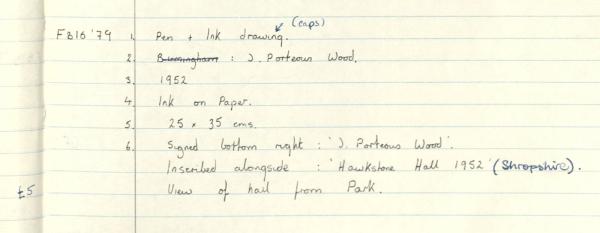 (caps)
F816'79 1. Pen + Ink drawing.
2. Birmingham : J. Porteous Wood.
3. 1952
4. Ink on Paper.
5. 25 x 35 cms.
6. Signed bottom right : 'J. Porteous Wood'.
Inscribed alongside : 'Hawkstone Hall 1952' (Shropshire).
£5 View of hall from Park.